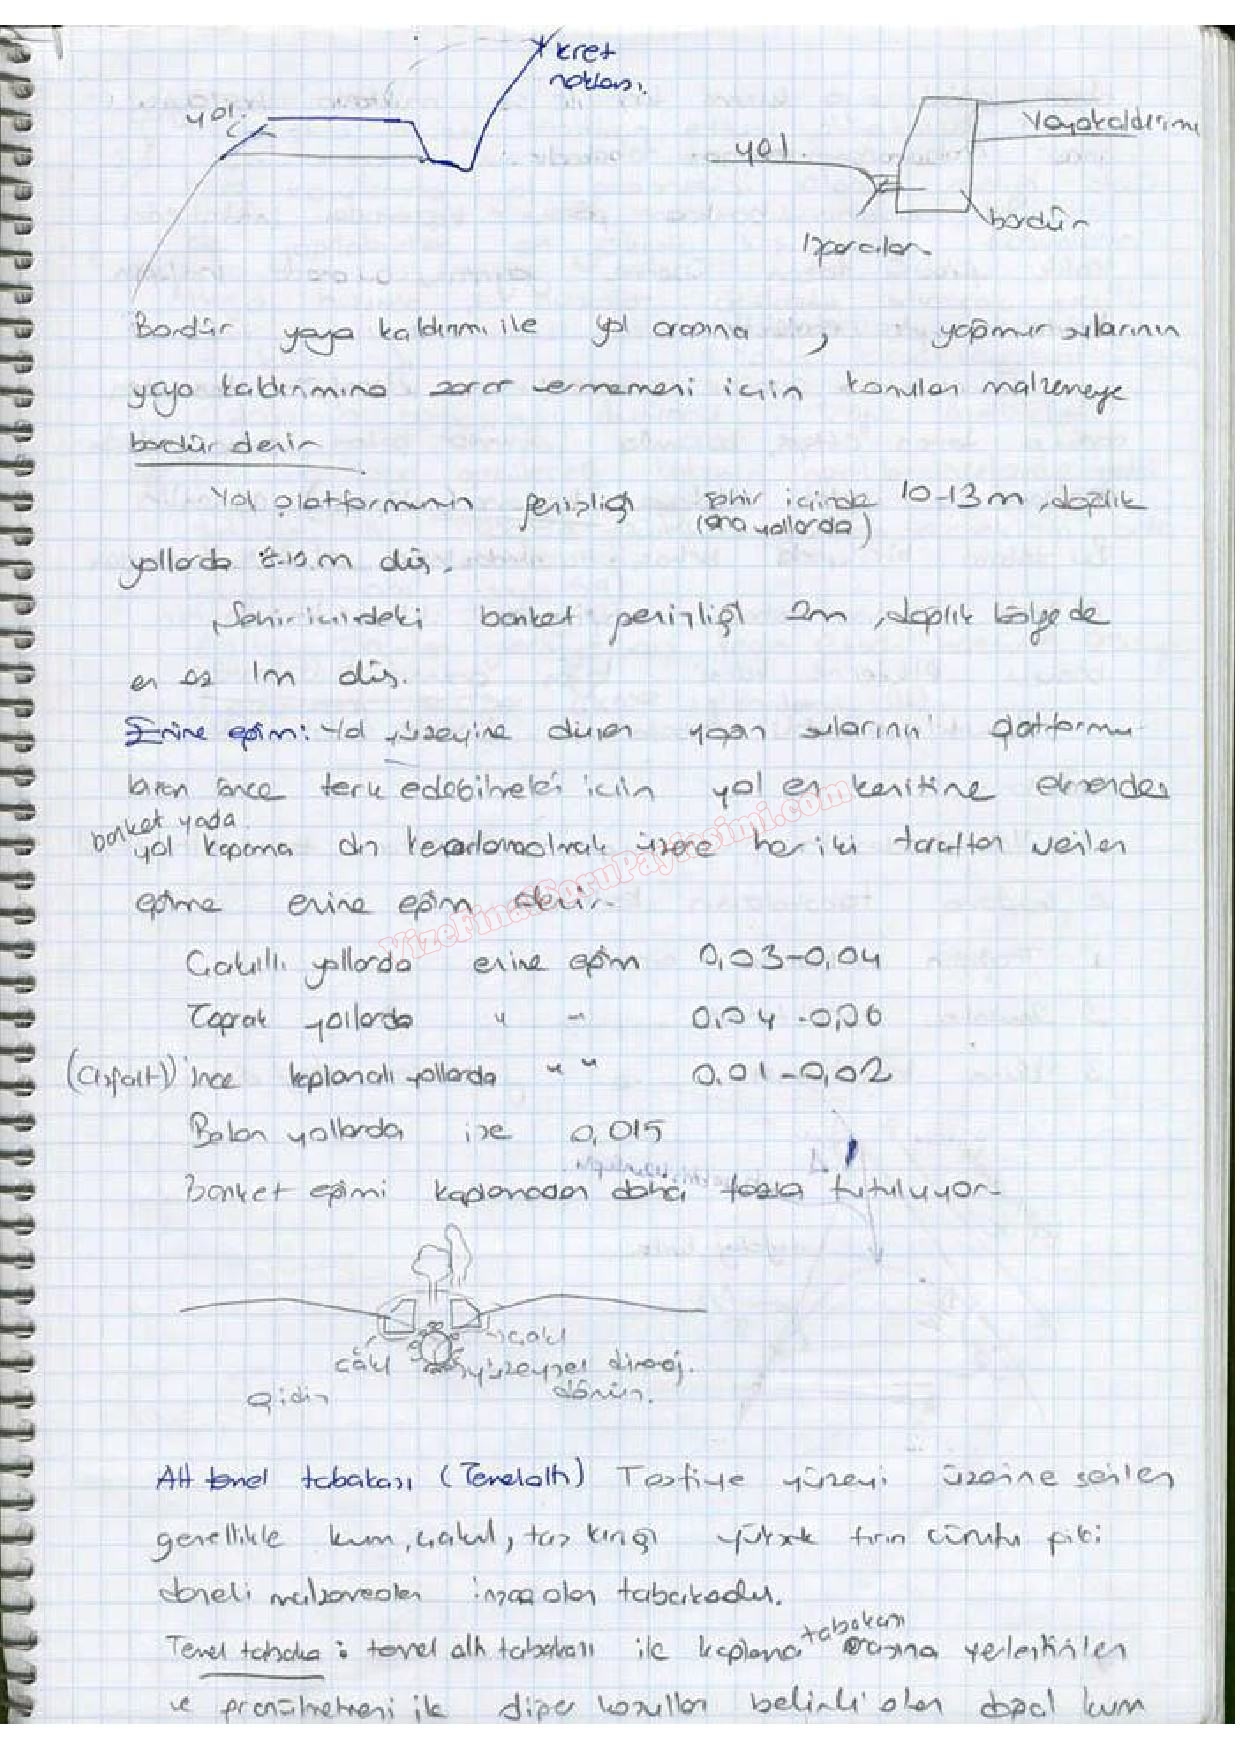 kret
noktası.
yol.
yol.
Yayakaldırımı
bordür
Izgaraları
Bordür yaya kaldırımı ile yol arasına, yağmur sularının
yaya kaldırımına zarar vermemesi için konulan malzemeye
bordür denir
Yol platformunun genişliği şehir içinde 10-13m, dağlık
(ana yollarda)
yollarda 8-10 m dir.
Şehir içindeki banket genişliği 2m, dağlık bölgede
en az 1m dir.
Enine eğim: Yol yüzeyine düşen yağan sularının platformu
biran önce terk edebilmeleri için yol en kesitine eksenden
banket yada
yol kaplama dn kenarlara olmak üzere her iki taraftan verilen
eğime enine eğim denir.
Çakıllı yollarda enine eğim 0,03-0,04
Toprak yollarda " " 0,04-0,06
(Asfalt) ince kaplamalı yollarda " " 0,01-0,02
Beton yollarda ise 0,015
Banket eğimi kaplamadan daha fazla tutuluyor
çakıl
çakıl
yüzeysel drenaj.
gidin
dönün.
Alt temel tabakası (Temelaltı) Tesfiye yüzeyi üzerine serilen
genellikle kum, çakıl, taş kırığı yüksek fırın cürufu gibi
daneli malzemeden inşaa olan tabakadır.
Temel tabaka: temel altı tabakası ile kaplama tabakası arasına yerleştirilen
ve granülmetresi ile diğer koşulları belirli olan doğal kum
VizeFinalSoruPaylasimi.com